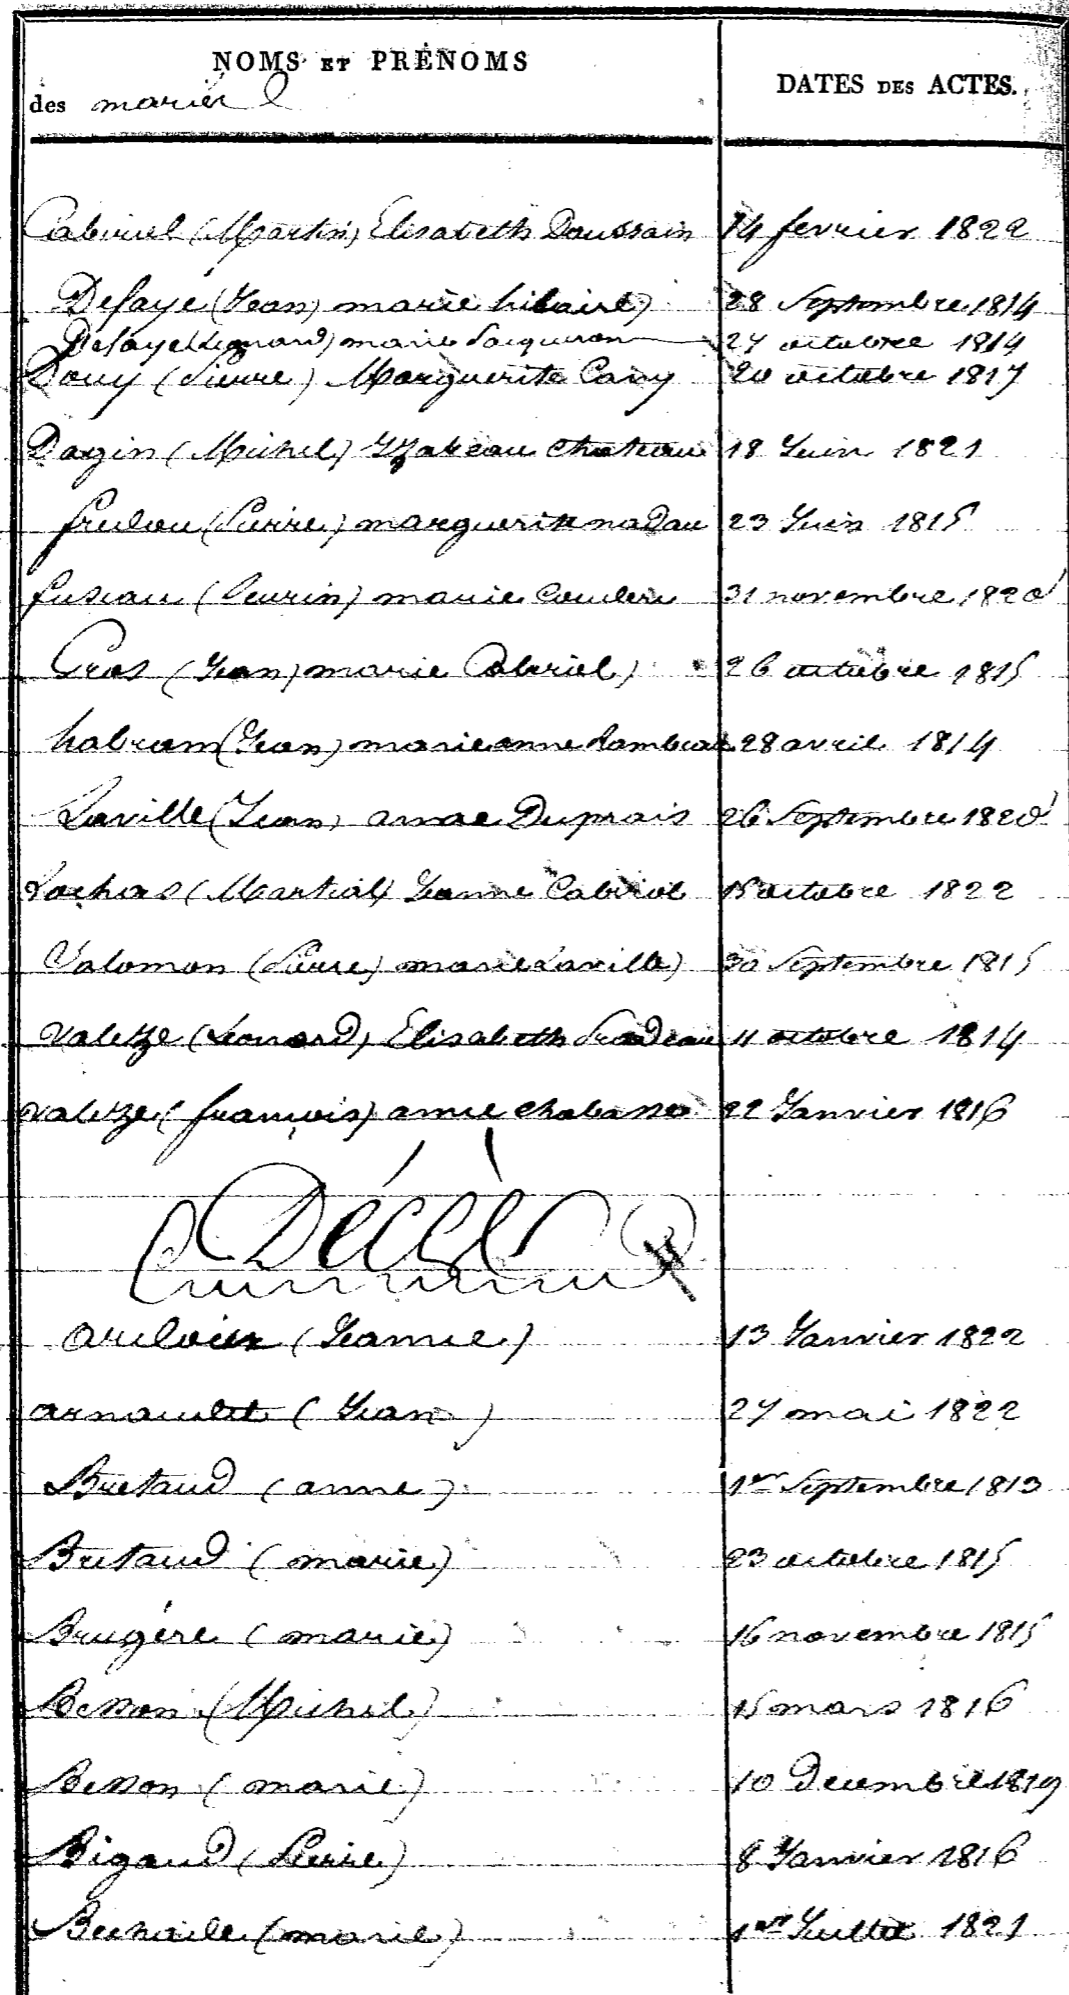 NOMS ET PRÉNOMS
DATES DES ACTES.
des mariés
(Martin) Elisabeth Daussain 14 fevrier 1822
Defaye (Jean) marie hilaire 28 Septembre 1814
Defaye (Leonard) marie 27 octobre 1814
Douy (Pierre) Marguerite Cany 20 octobre 1817
Dagin (Michel) Yzabeau Chateau 18 Juin 1821
(Pierre) marguerite nadau 23 Juin 1815
fuseau (Seurin) marie 31 novembre 1820
Gros (Jean) marie Cabriel 26 octobre 1815
habram (Jean) marie anne 28 avril 1814
Laville (Jean) anne Duprais 26 Septembre 1820
Lachas (Martial) Jeanne Cabirol 15 octobre 1822
Valomon (Pierre) marie Laville 30 Septembre 1815
Valetze (Leonard) Elisabeth 11 octobre 1814
Valetze (françois) anne 22 Janvier 1816
Décès
(Jeanne) 13 Janvier 1822
arnaudet (Jean) 27 mai 1822
Bretaud (anne) 1er Septembre 1813
Bretaud (marie) 23 octobre 1815
Brugére (marie) 16 novembre 1815
Besson (Michel) 15 mars 1816
Besson (marie) 10 Decembre 1819
Bigaud (Pierre) 8 Janvier 1816
(marie) 1er Juillet 1821